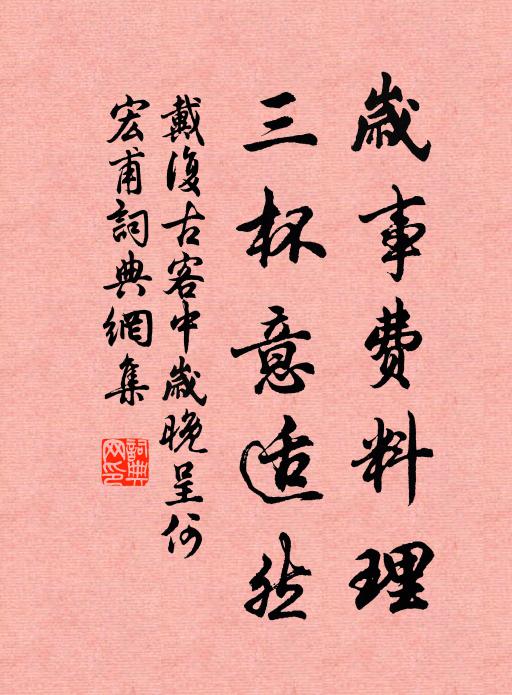 歲事費料理
三杯意适然
戴復古客中歲晚呈何
宏甫詞典網集
詞典网印